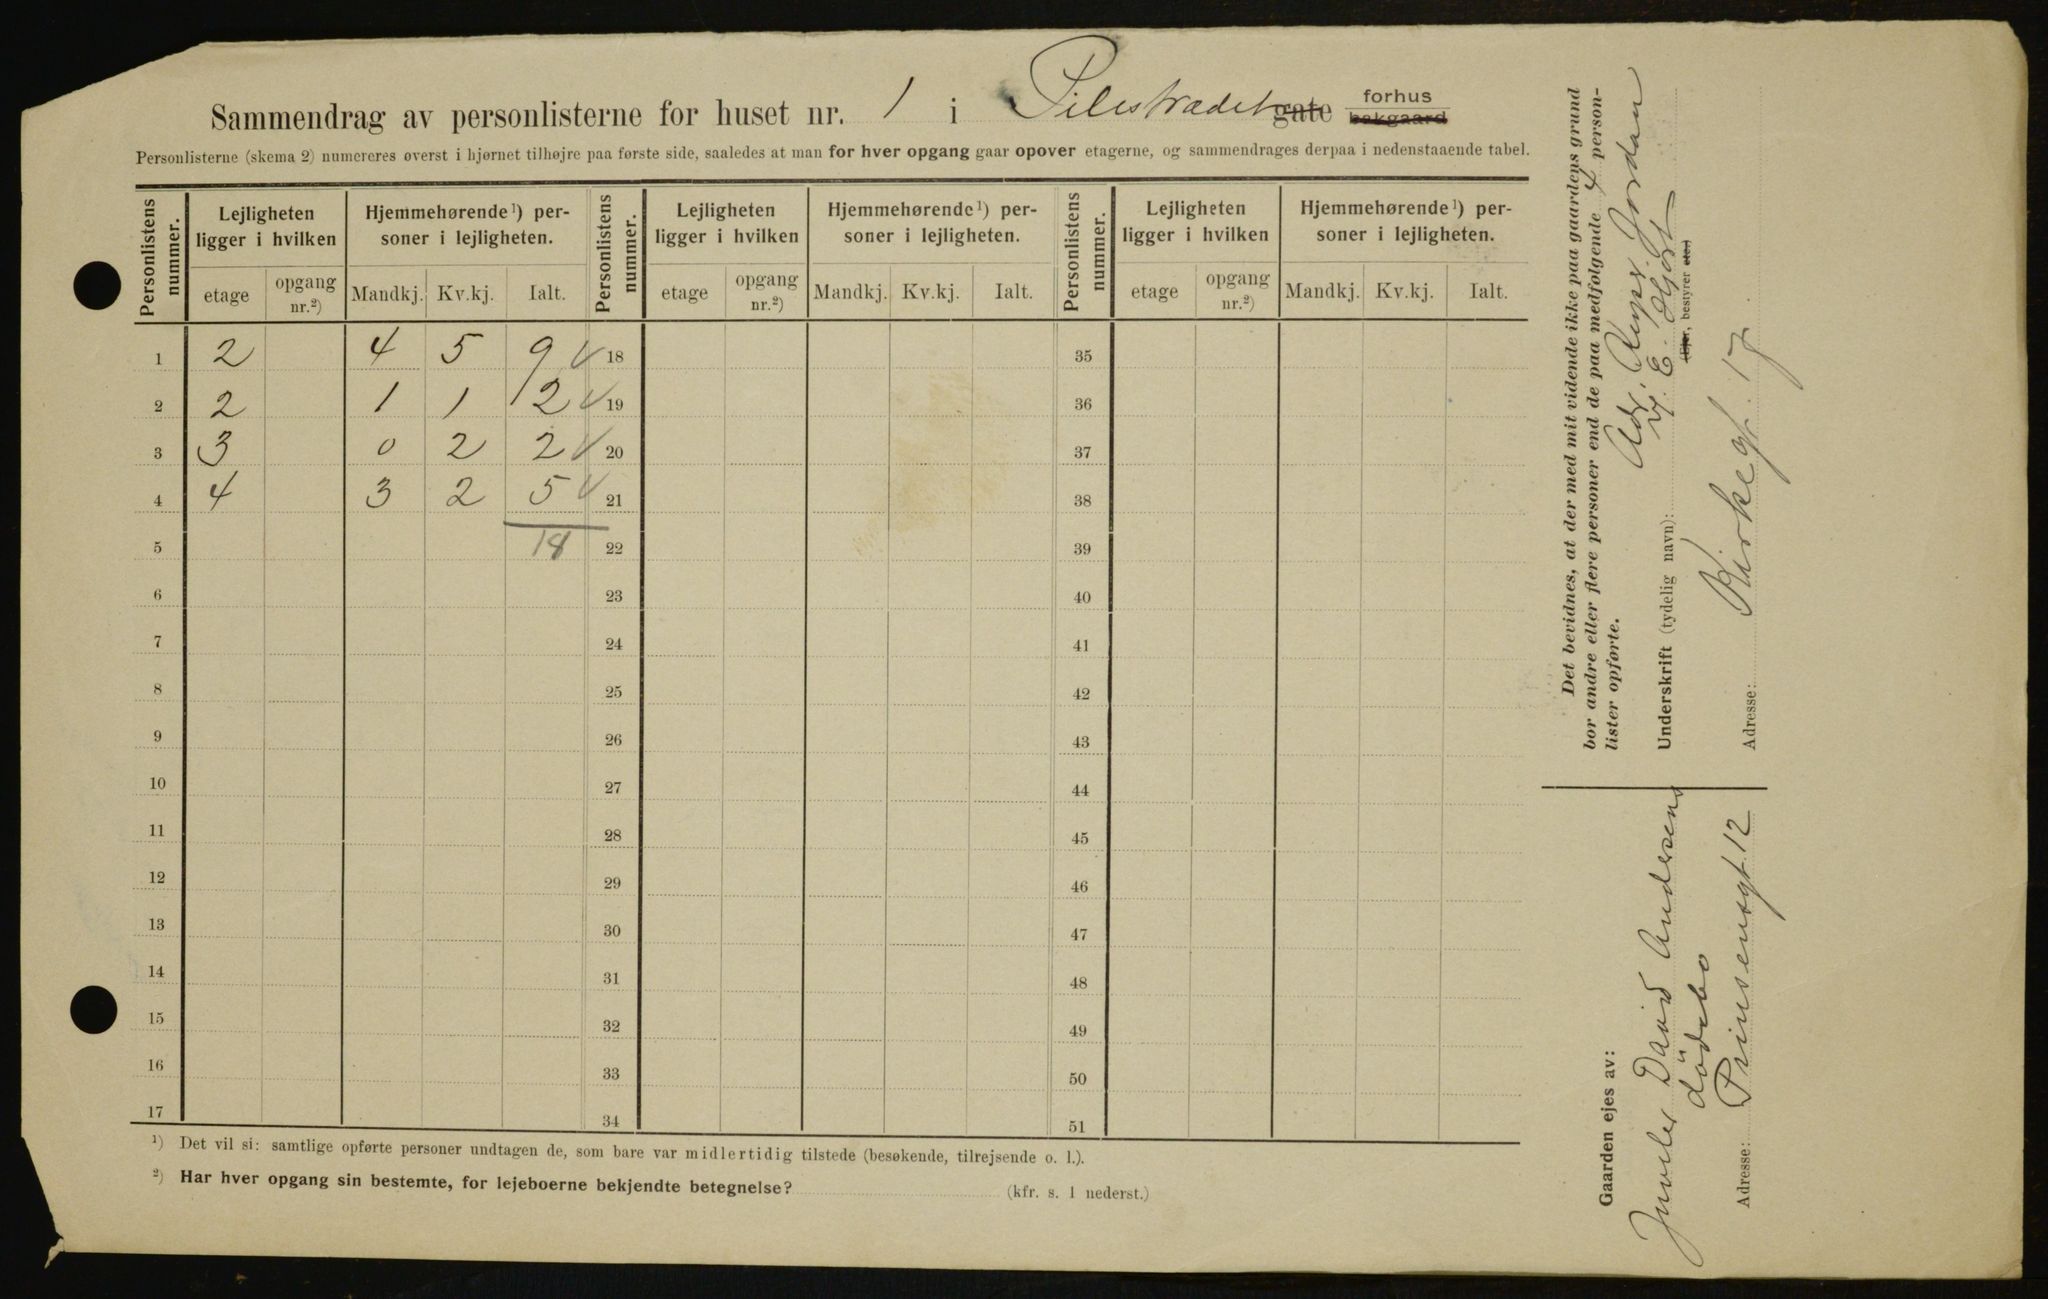 Sammendrag av personlisterne for huset nr. 1 i Pilestrædet gate forhus bakgaard
Personlisterne (skema 2) numereres øverst i hjørnet tilhøjre paa første side, saaledes at man for hver opgang gaar opover etagerne, og sammendrages derpaa i nedenstaaende tabel.
Personlistens nummer. Lejligheten ligger i hvilken Hjemmehørende 1) personer i lejligheten. Personlistens nummer. Lejligheten ligger i hvilken Hjemmehørende 1) personer i lejligheten. Personlistens nummer. Lejligheten ligger i hvilken Hjemmehørende 1) personer i lejligheten.
etage opgang nr.2) Mandkj. Kv.kj. Ialt. etage opgang nr.2) Mandkj. Kv.kj. Ialt. etage opgang nr.2) Mandkj. Kv.kj. Ialt.
1 2 4 5 9 18 35
2 2 1 1 2 19 36
3 3 0 2 2 20 37
4 4 3 2 5 21 38
5 18 22 39
6 23 40
7 24 41
8 25 42
9 26 43
10 27 44
11 28 45
12 29 46
13 30 47
14 31 48
15 32 49
16 33 50
17 34 51
1) Det vil si: samtlige opførte personer undtagen de, som bare var midlertidig tilstede (besøkende, tilrejsende o. l.).
2) Har hver opgang sin bestemte, for lejeboerne bekjendte betegnelse? (kfr. s. 1 nederst.)
Det bevidnes, at der med mit vidende ikke paa gaardens grund
bor andre eller flere personer end de paa medfølgende 4 person-
lister opførte.
Underskrift (tydelig navn):
Jordan
E. Hjort
(Ejer, bestyrer etc.)
Adresse: Kirkegt. 17.
Gaarden ejes av:
Juveler David Andersens
dødsbo
Adresse: Prinsensgt 12